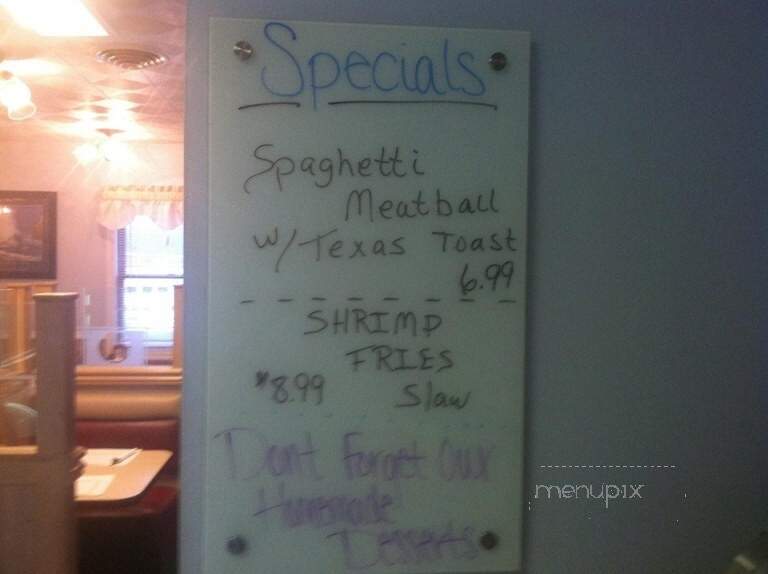 Specials
Spaghetti
Meatball
w/Texas Toast
6.99
SHRIMP
FRIES
$8.99 Slaw
Dont Forget Our
Homemade
Desserts
menupix